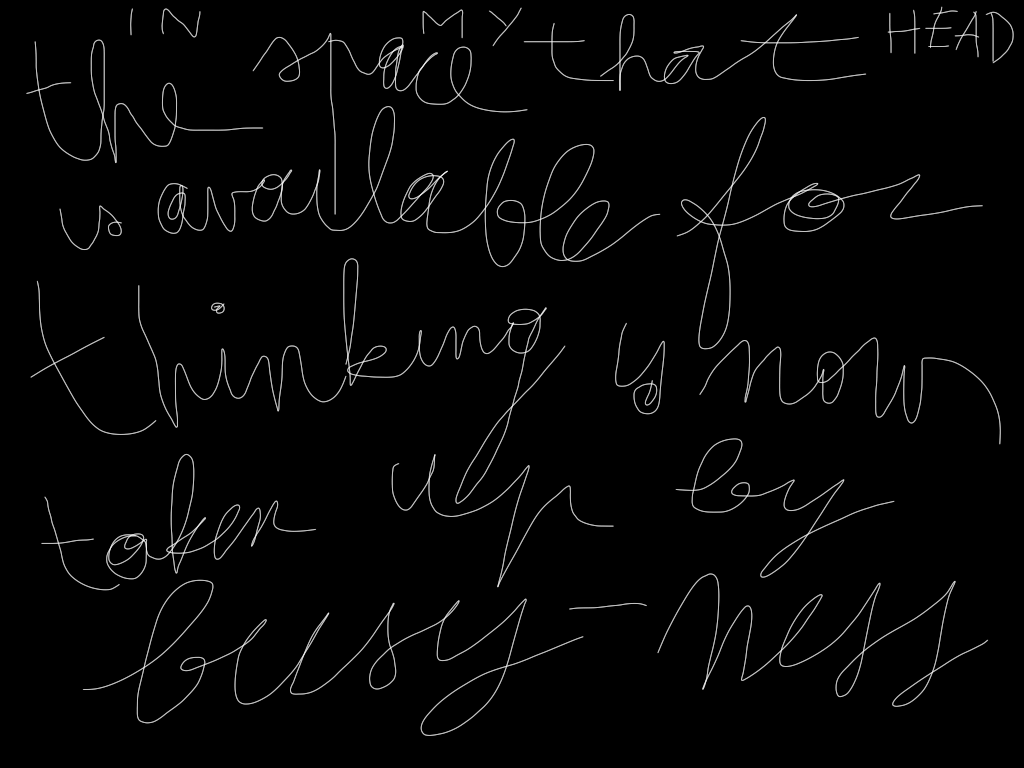 IN MY HEAD
the space that
is available for
thinking is now
taken up by
busy-ness